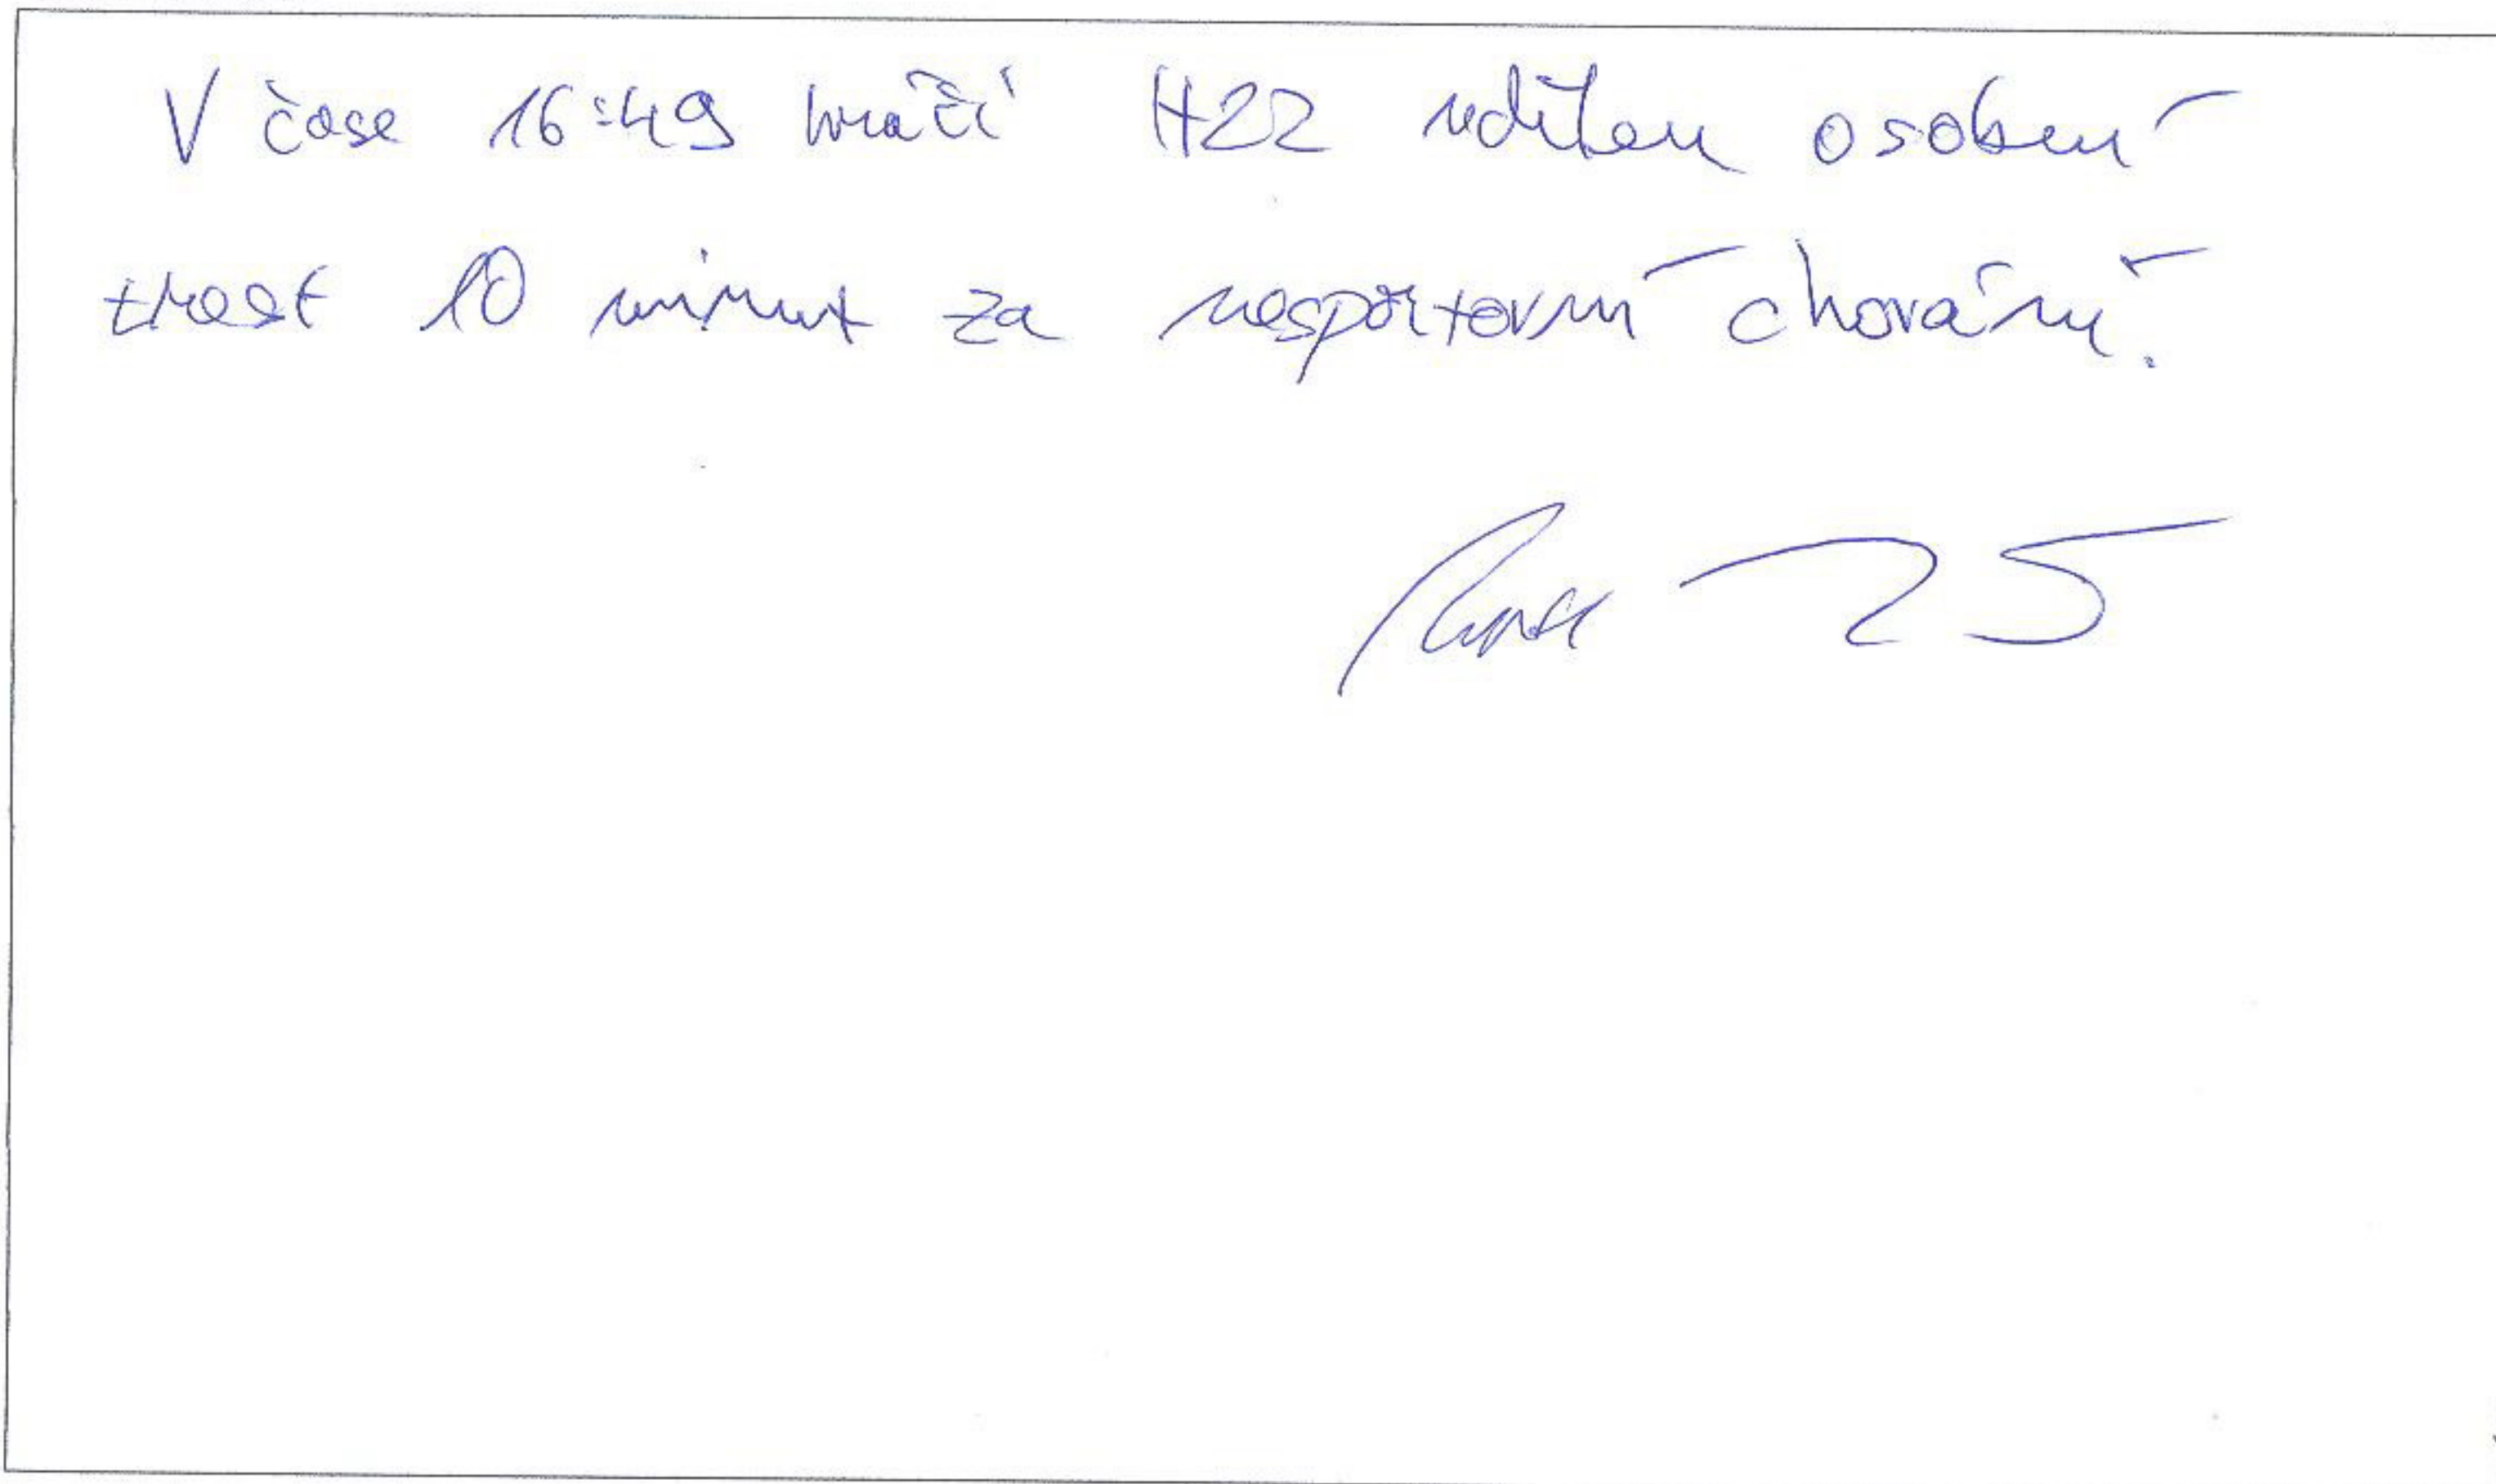 V čase 16:49 hráči H22 udělen osobní
trest 10 minut za nesportovní chování.
25